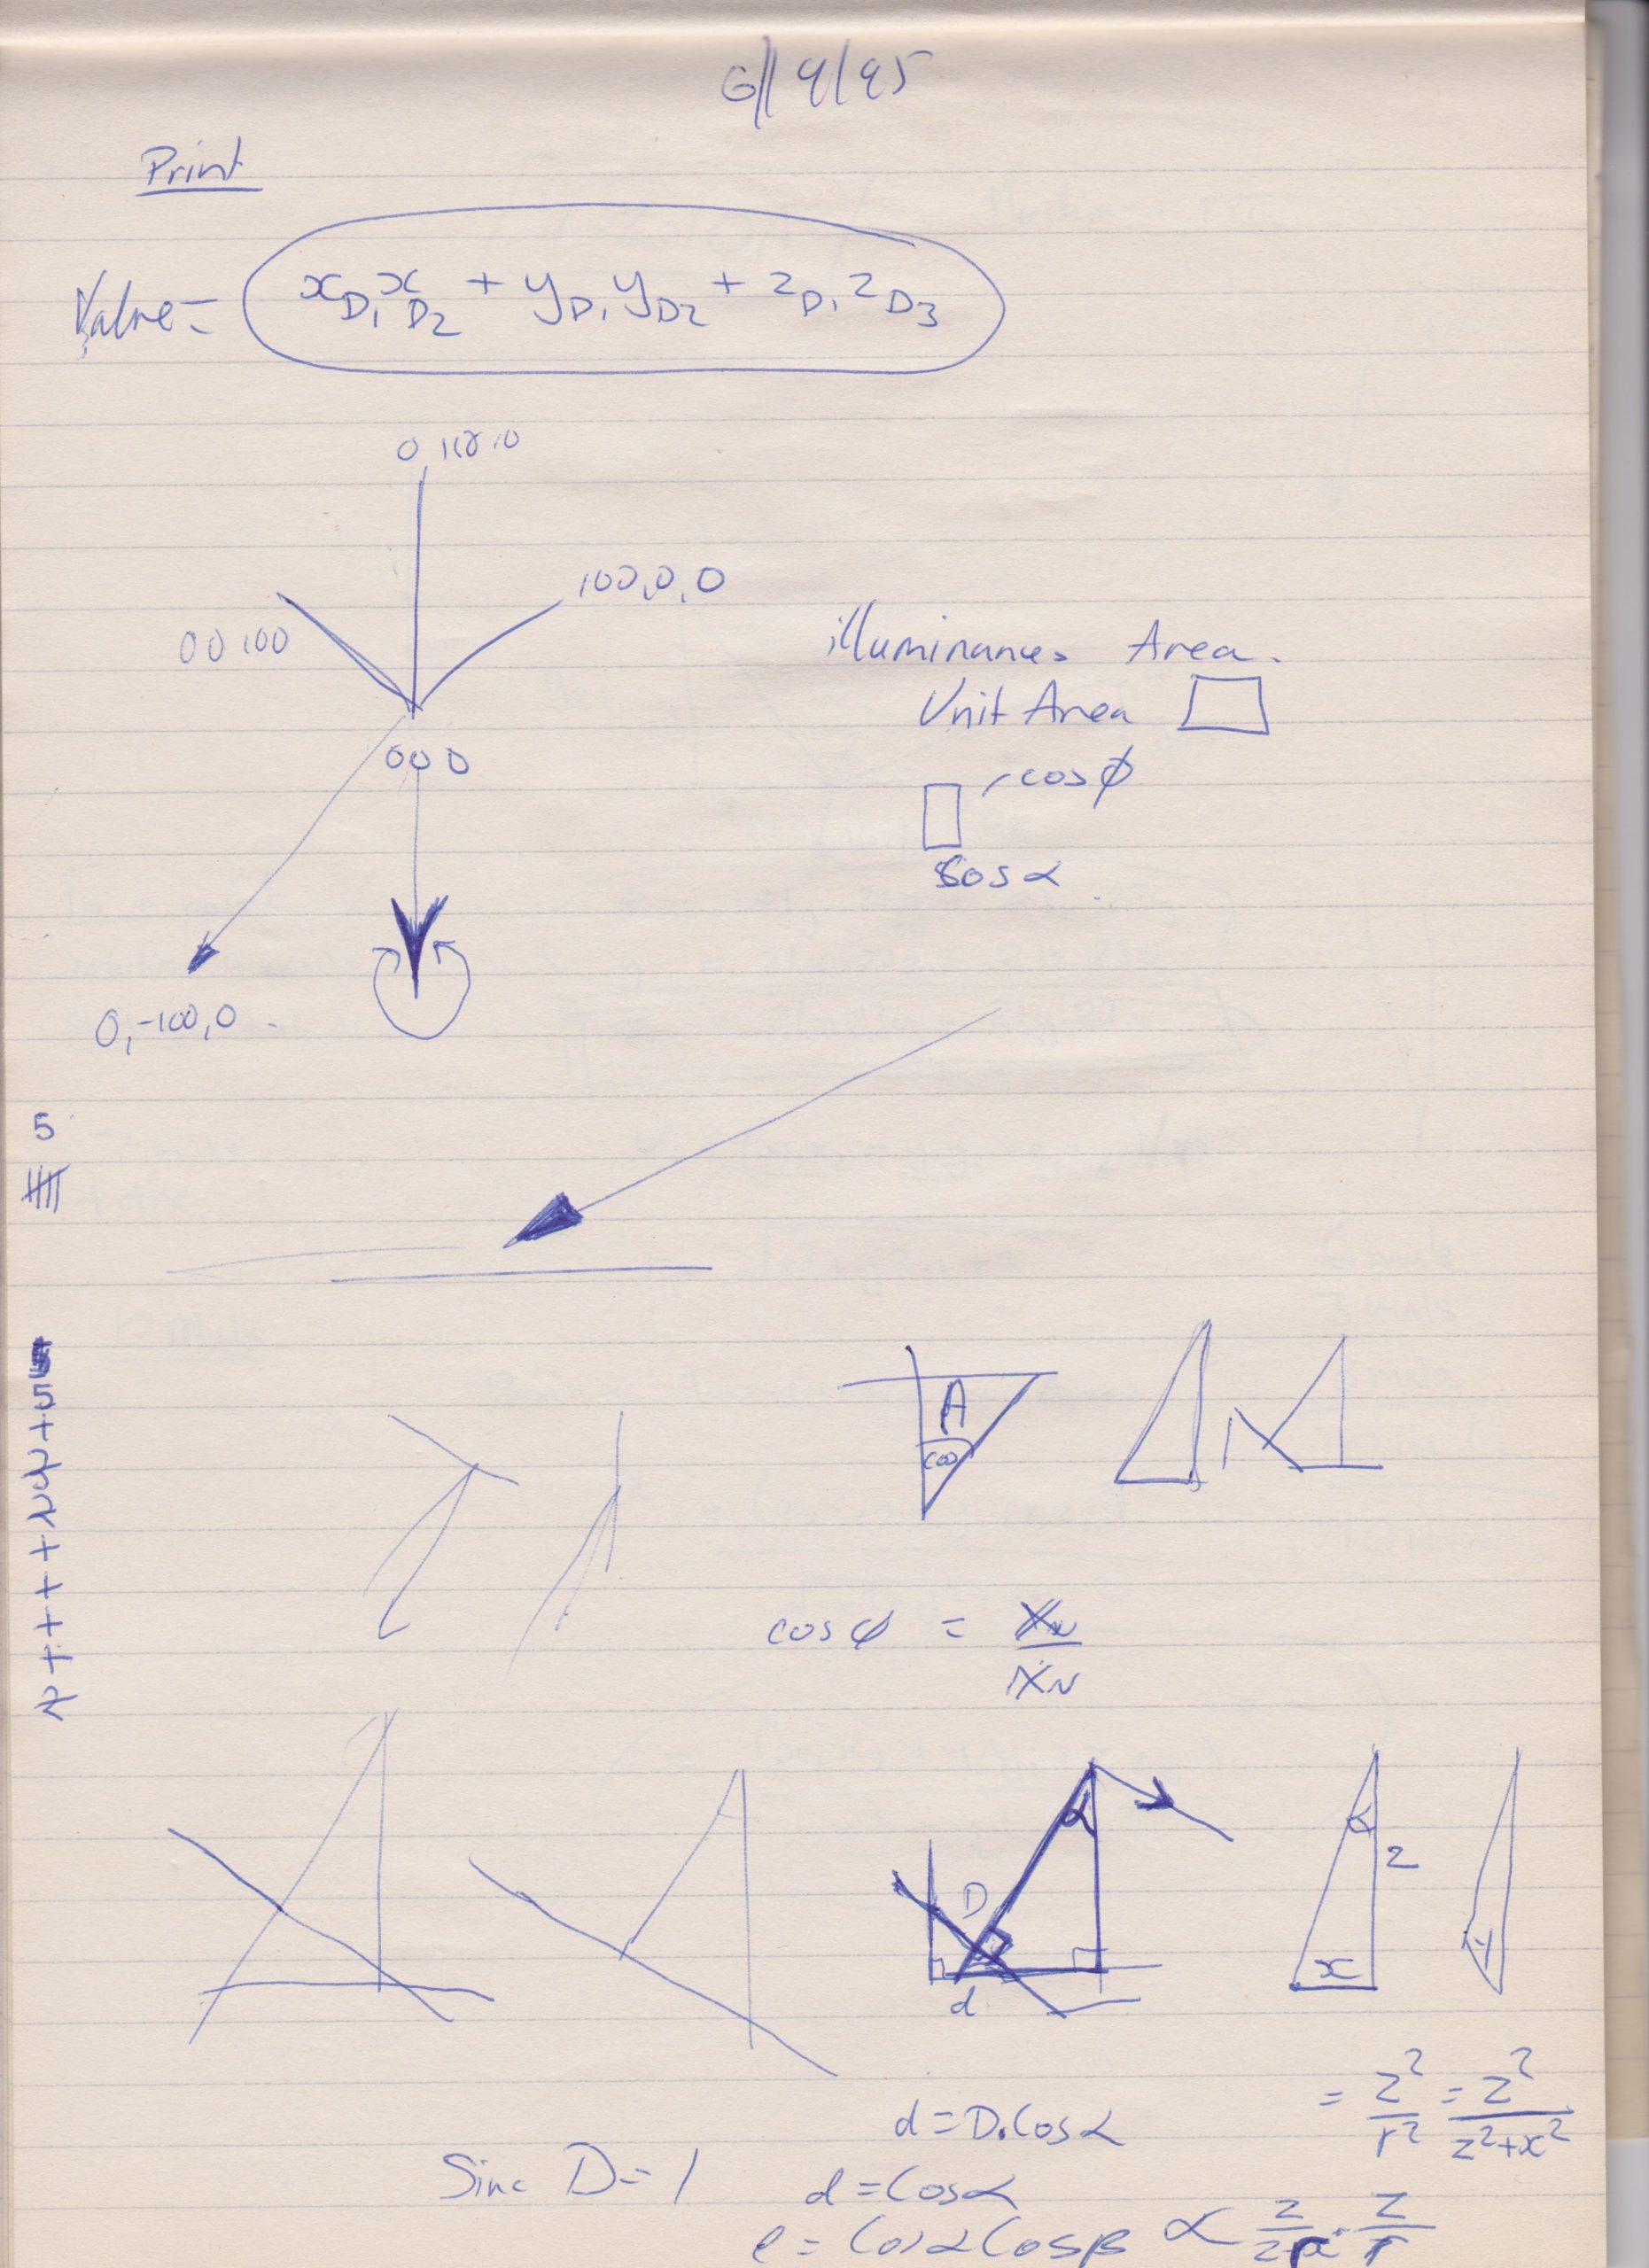 6/9/95
Print
Value = x_D1 x_D2 + y_D1 y_D2 + z_D1 z_D3
0 100.0
100,0,0
00 100
000
0,-100,0
illuminance. Area.
Unit Area
cos φ
Cos α
5
A
cos
cos φ = X_N / X_N
α
D
d
α
z
x
= z² / r² = z² / (z²+x²)
d = D.Cos α
Sinc D = 1
d = Cos α
e = Cos α Cos β ∝